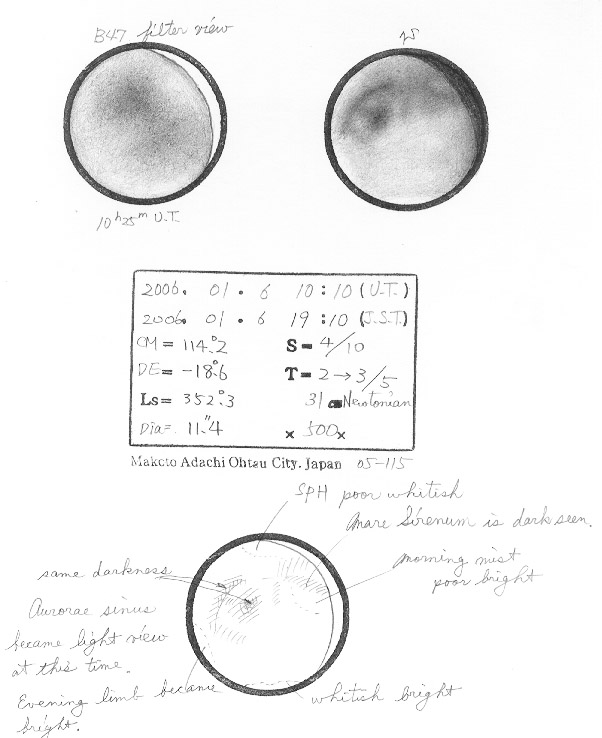 B47 filter view
10h25m U.T.
2006. 01. 6 10:10 (U.T.)
2006. 01. 6 19:10 (J.S.T.)
CM = 114.°2 S = 4/10
DE = -18.°6 T = 2→3/5
Ls = 352.°3 31 cm Newtonian
Dia = 11."4 × 500x
Makoto Adachi Ohtsu City. Japan 05-115
SPH poor whitish
Mare Sirenum is dark seen.
morning mist
poor bright
same darkness
Aurorae sinus
became light view
at this time.
Evening limb became
bright.
whitish bright